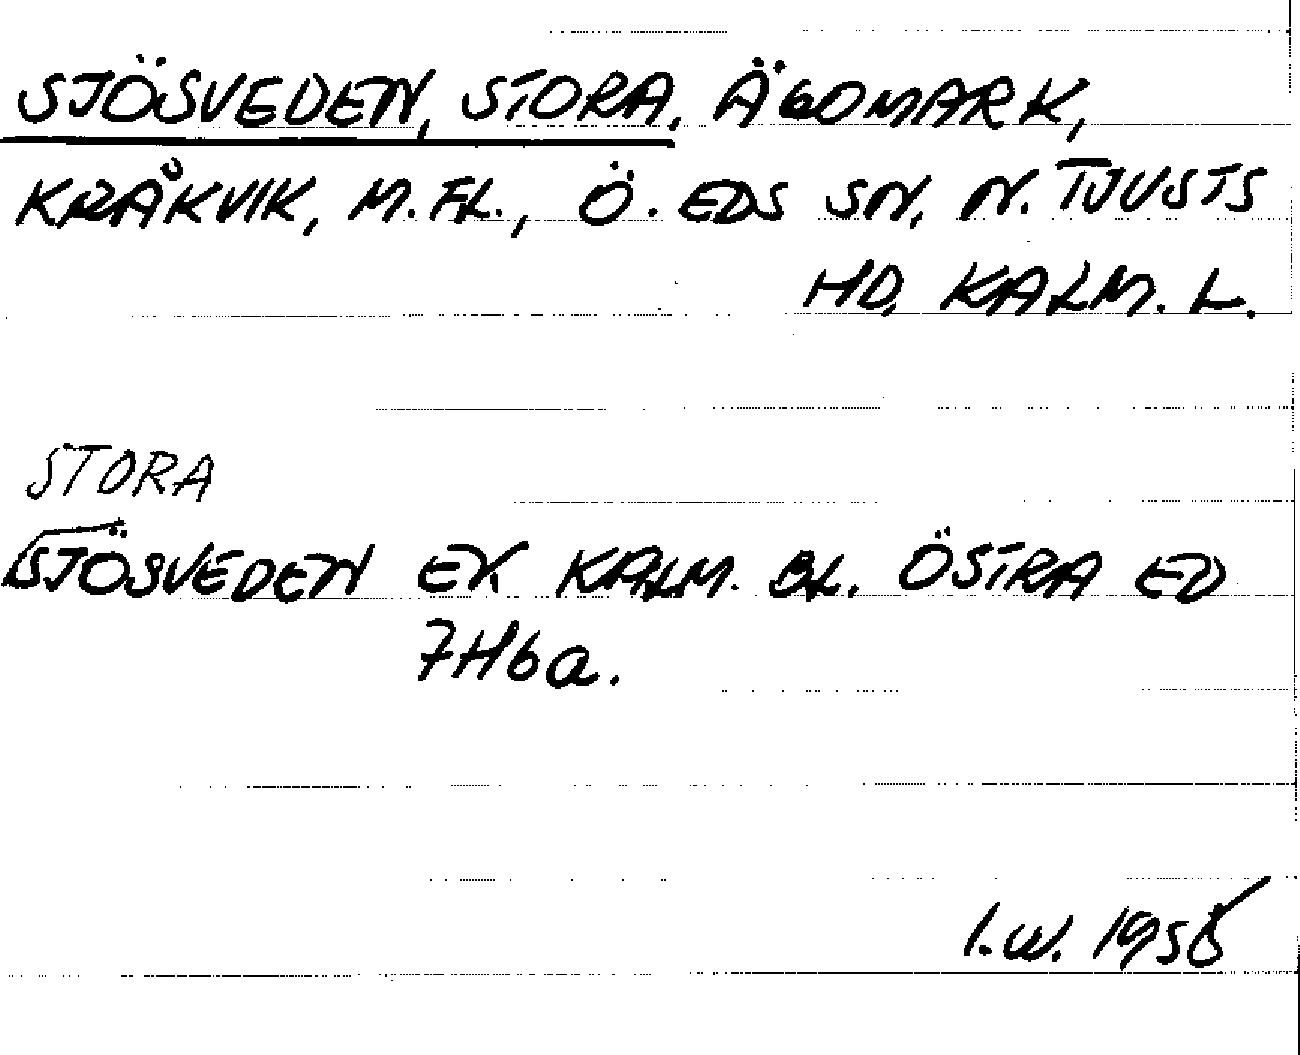 SJÖSVEDEN, STORA, ÄGOMARK,
KRÅKVIK, M.FL., Ö. EDS SN, N. TJUSTS
HD, KALM. L.
STORA
SJÖSVEDEN EK. KALM. BL. ÖSTRA ED
7H6a.
I.W. 1958